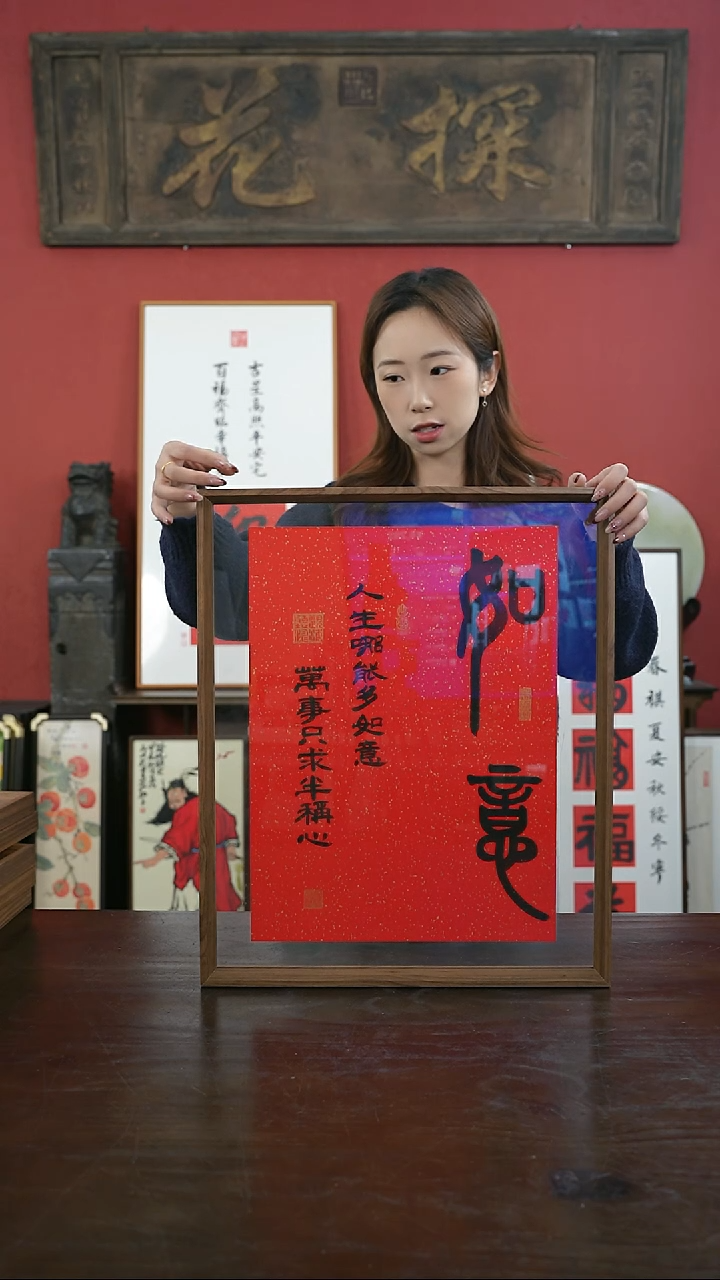 探花
吉星高照平安宅
百福齊臨幸福
如意
人生哪能多如意
萬事只求半稱心
春祺夏安秋綏冬寧
福
福